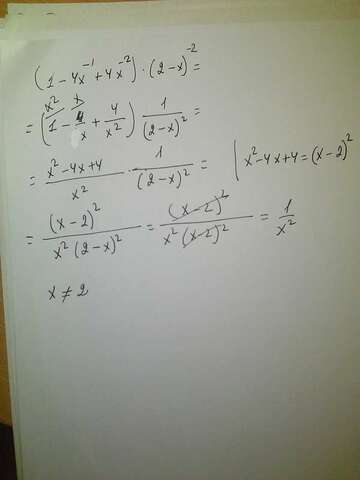 (1 - 4x⁻¹ + 4x⁻²) · (2 - x)⁻² =
= (1 - 4/x + 4/x²) · 1/(2 - x)² =
= (x² - 4x + 4)/x² · 1/(2 - x)² = | x² - 4x + 4 = (x - 2)²
= (x - 2)²/(x² (2 - x)²) = (x - 2)²/(x² (x - 2)²) = 1/x²
x ≠ 2